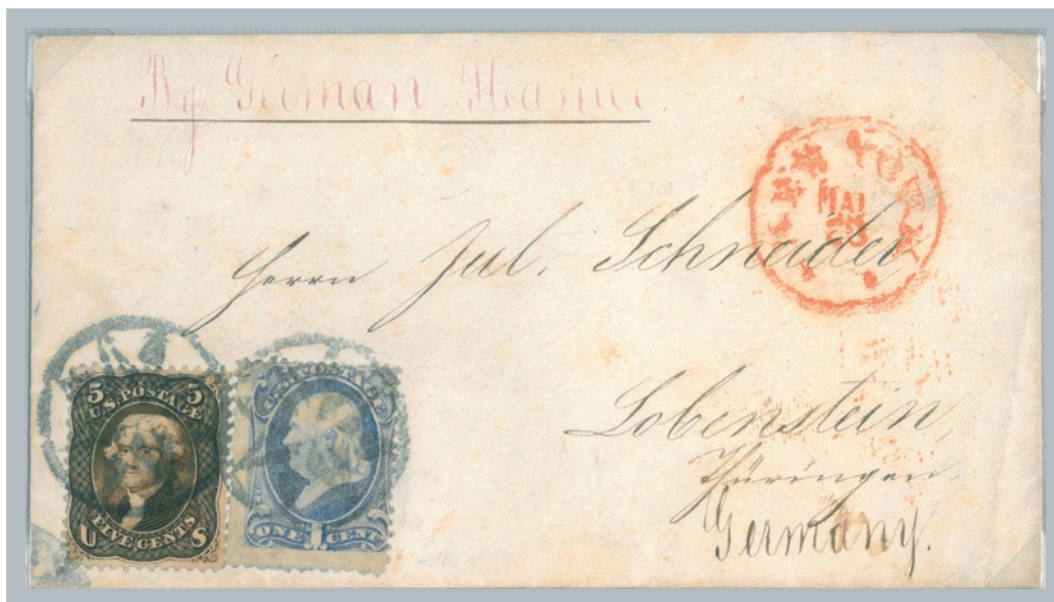 By German Steamer.
NEW YORK
MAI
Herrn Jul. Schneider,
Lobenstein,
Thüringen.
Germany.
5 5
U.S. POSTAGE
FIVE CENTS
U S
U.S. POSTAGE
ONE 1 CENT